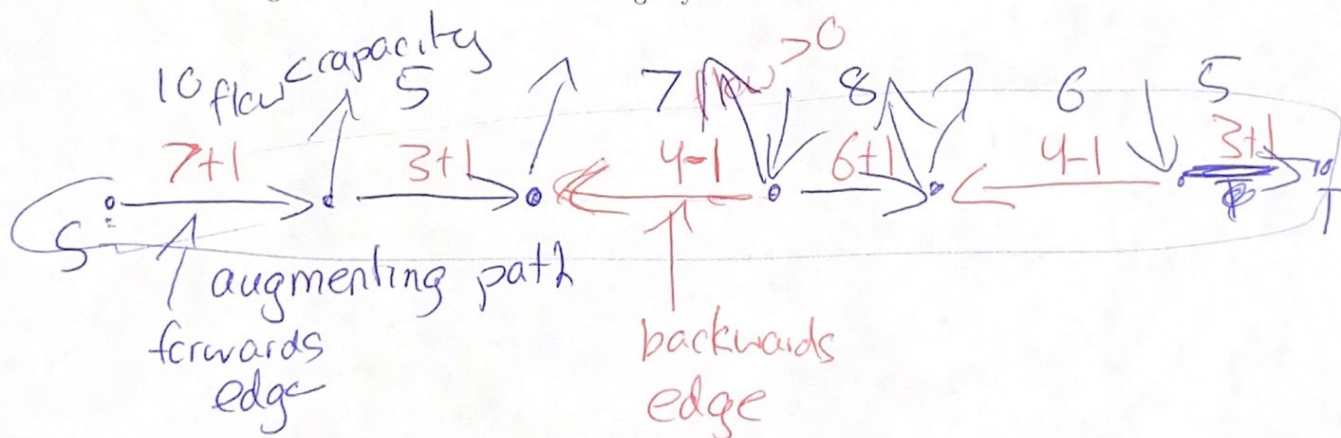 10 flow < capacity 5 7 flow > 0 8 6 5
7+1 3+1 4-1 6+1 4-1 3+1
S T
augmenting path
forwards backwards
edge edge